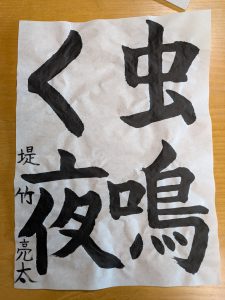 虫鳴
く夜
堤竹亮太